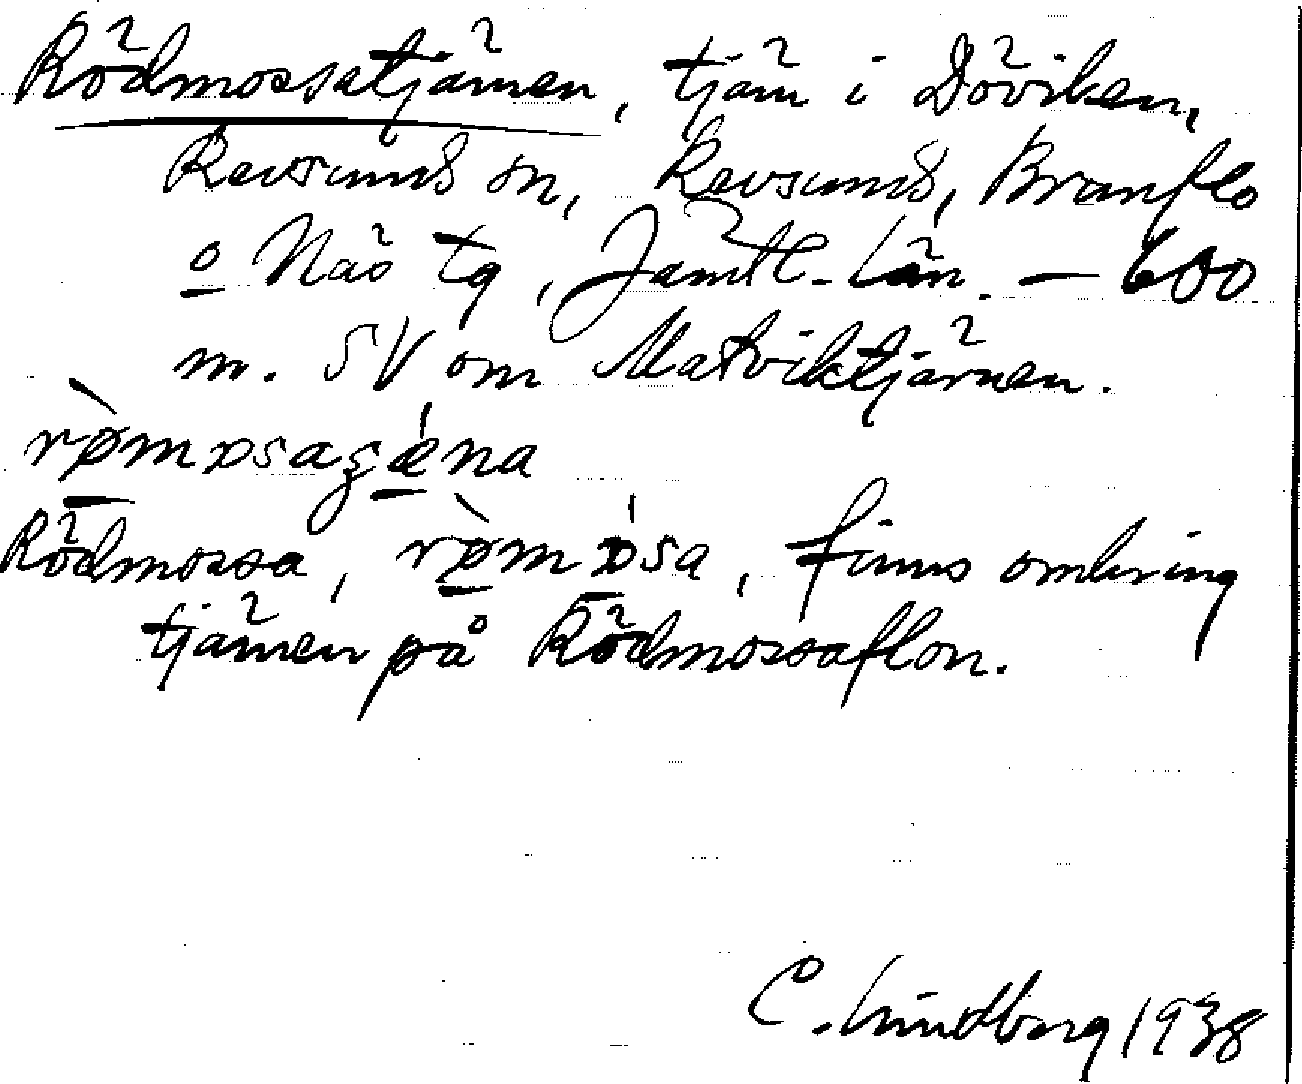 Rödmossatjärnen, tjärn i Döviken,
Revsunds sn, Revsunds, Brunflo
o Näs tg, Jämtl. län. — 600
m. SV om Matviktjärnen.
rø̀mɒsaʒǽna
Rödmossa, rø̀mɒ́sa, finns omkring
tjärnen på Rödmossaflon.
C. Lindberg 1938